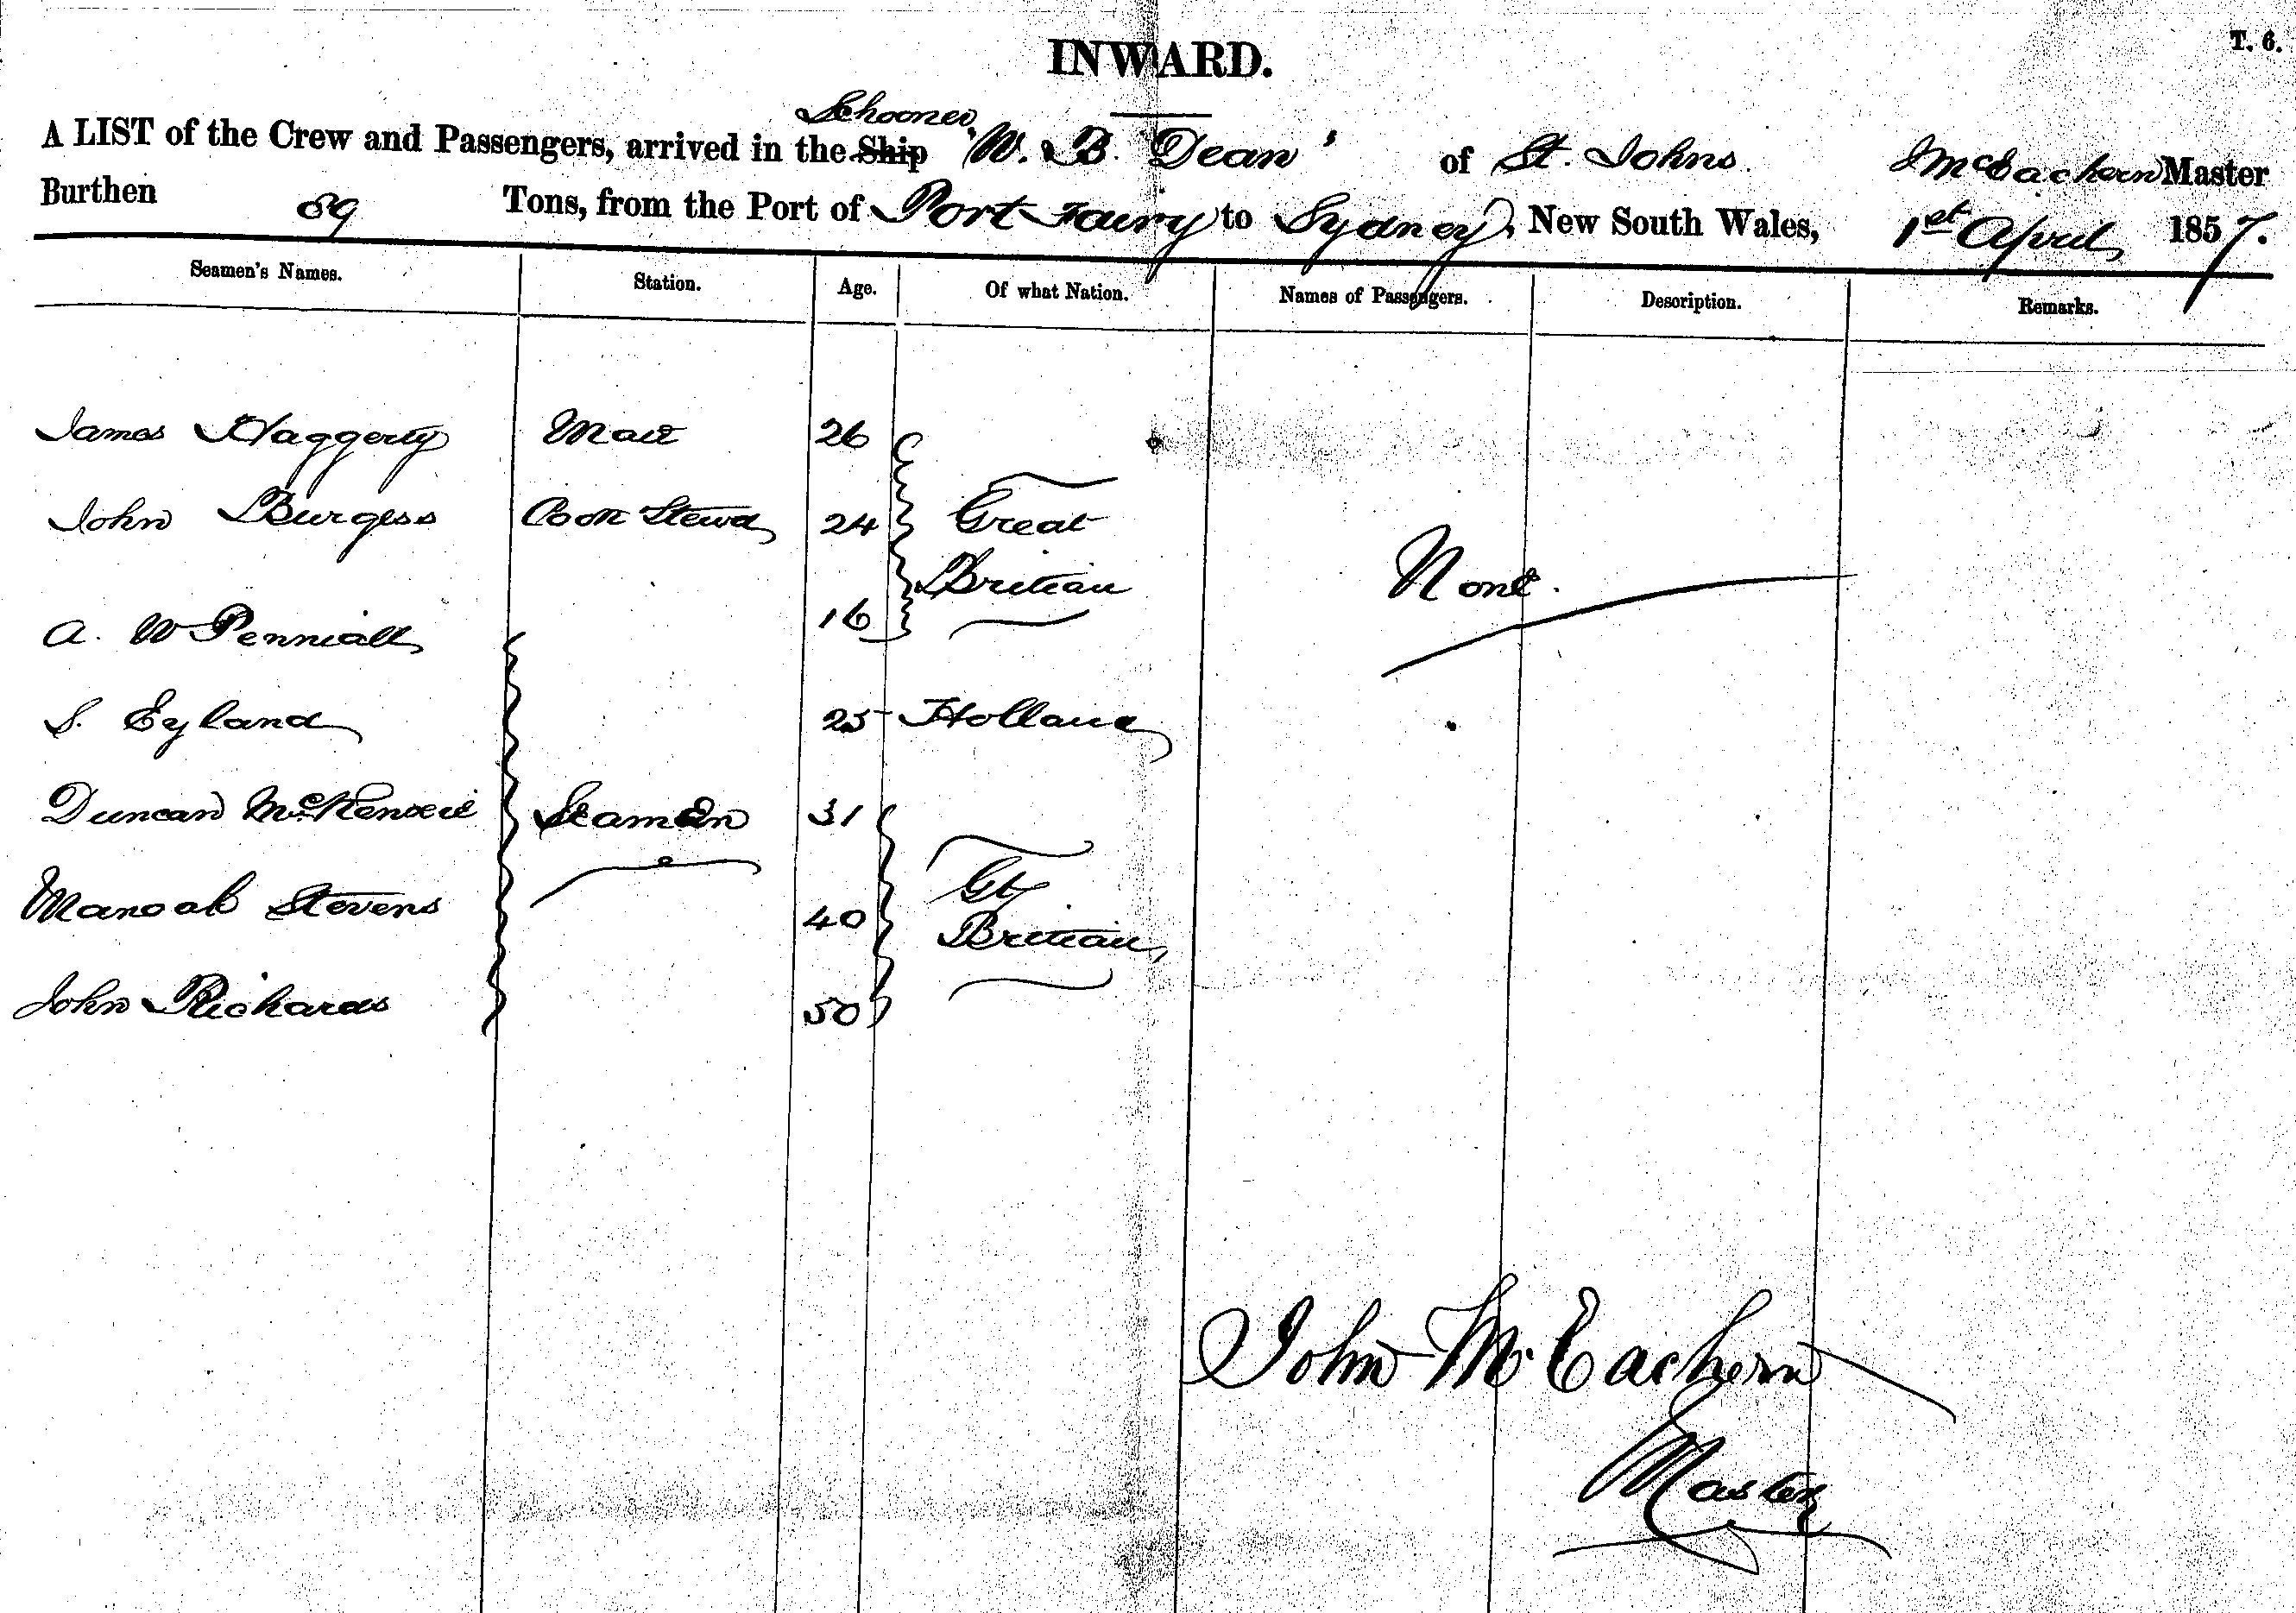 T. 6.
INWARD.
Schooner
A LIST of the Crew and Passengers, arrived in the Ship "W. B. Dean" of St. Johns J McEachern Master
Burthen 89 Tons, from the Port of Port Fairy to Sydney, New South Wales, 1st April 1857.
Seamen's Names. Station. Age. Of what Nation. Names of Passengers. Description. Remarks.
James Haggerty Mate 26
John Burgess Cook Stewd 24 Great
Britian None.
A. W Penniall 16
S. Eyland 25 Holland
Duncan McKenzie Seamen 31
Manoah Stevens 40 Gt
Britian
John Richards 50
John McEachern
Master